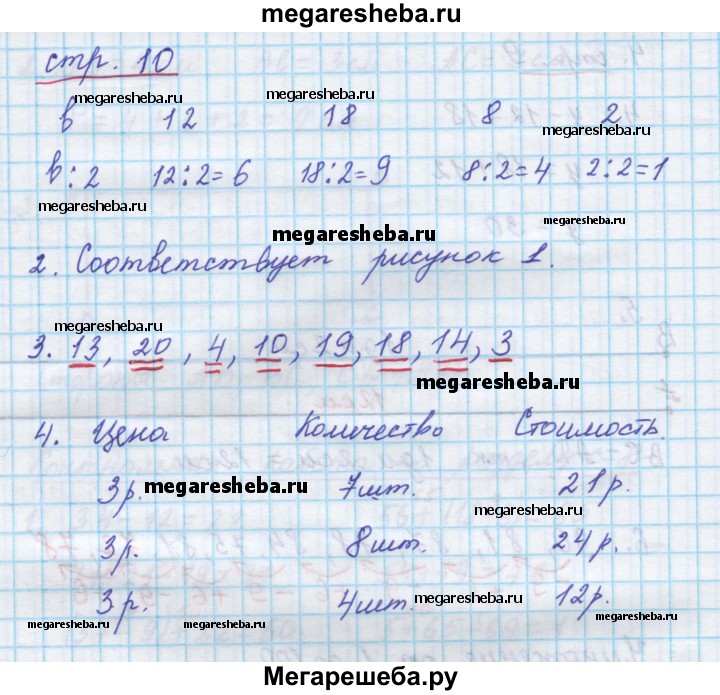 megaresheba.ru
стр. 10
megaresheba.ru megaresheba.ru
в 12 18 8 2
megaresheba.ru
в : 2 12 : 2 = 6 18 : 2 = 9 8 : 2 = 4 2 : 2 = 1
megaresheba.ru
megaresheba.ru
2. Соответствует рисунок 1.
megaresheba.ru
3. 13, 20, 4, 10, 19, 18, 14, 3
megaresheba.ru
4. Цена Количество Стоимость
megaresheba.ru
3р. 7шт. 21р.
megaresheba.ru
3р. 8шт. 24р.
megaresheba.ru
3р. 4шт. 12р.
megaresheba.ru megaresheba.ru megaresheba.ru
Мегарешеба.ру